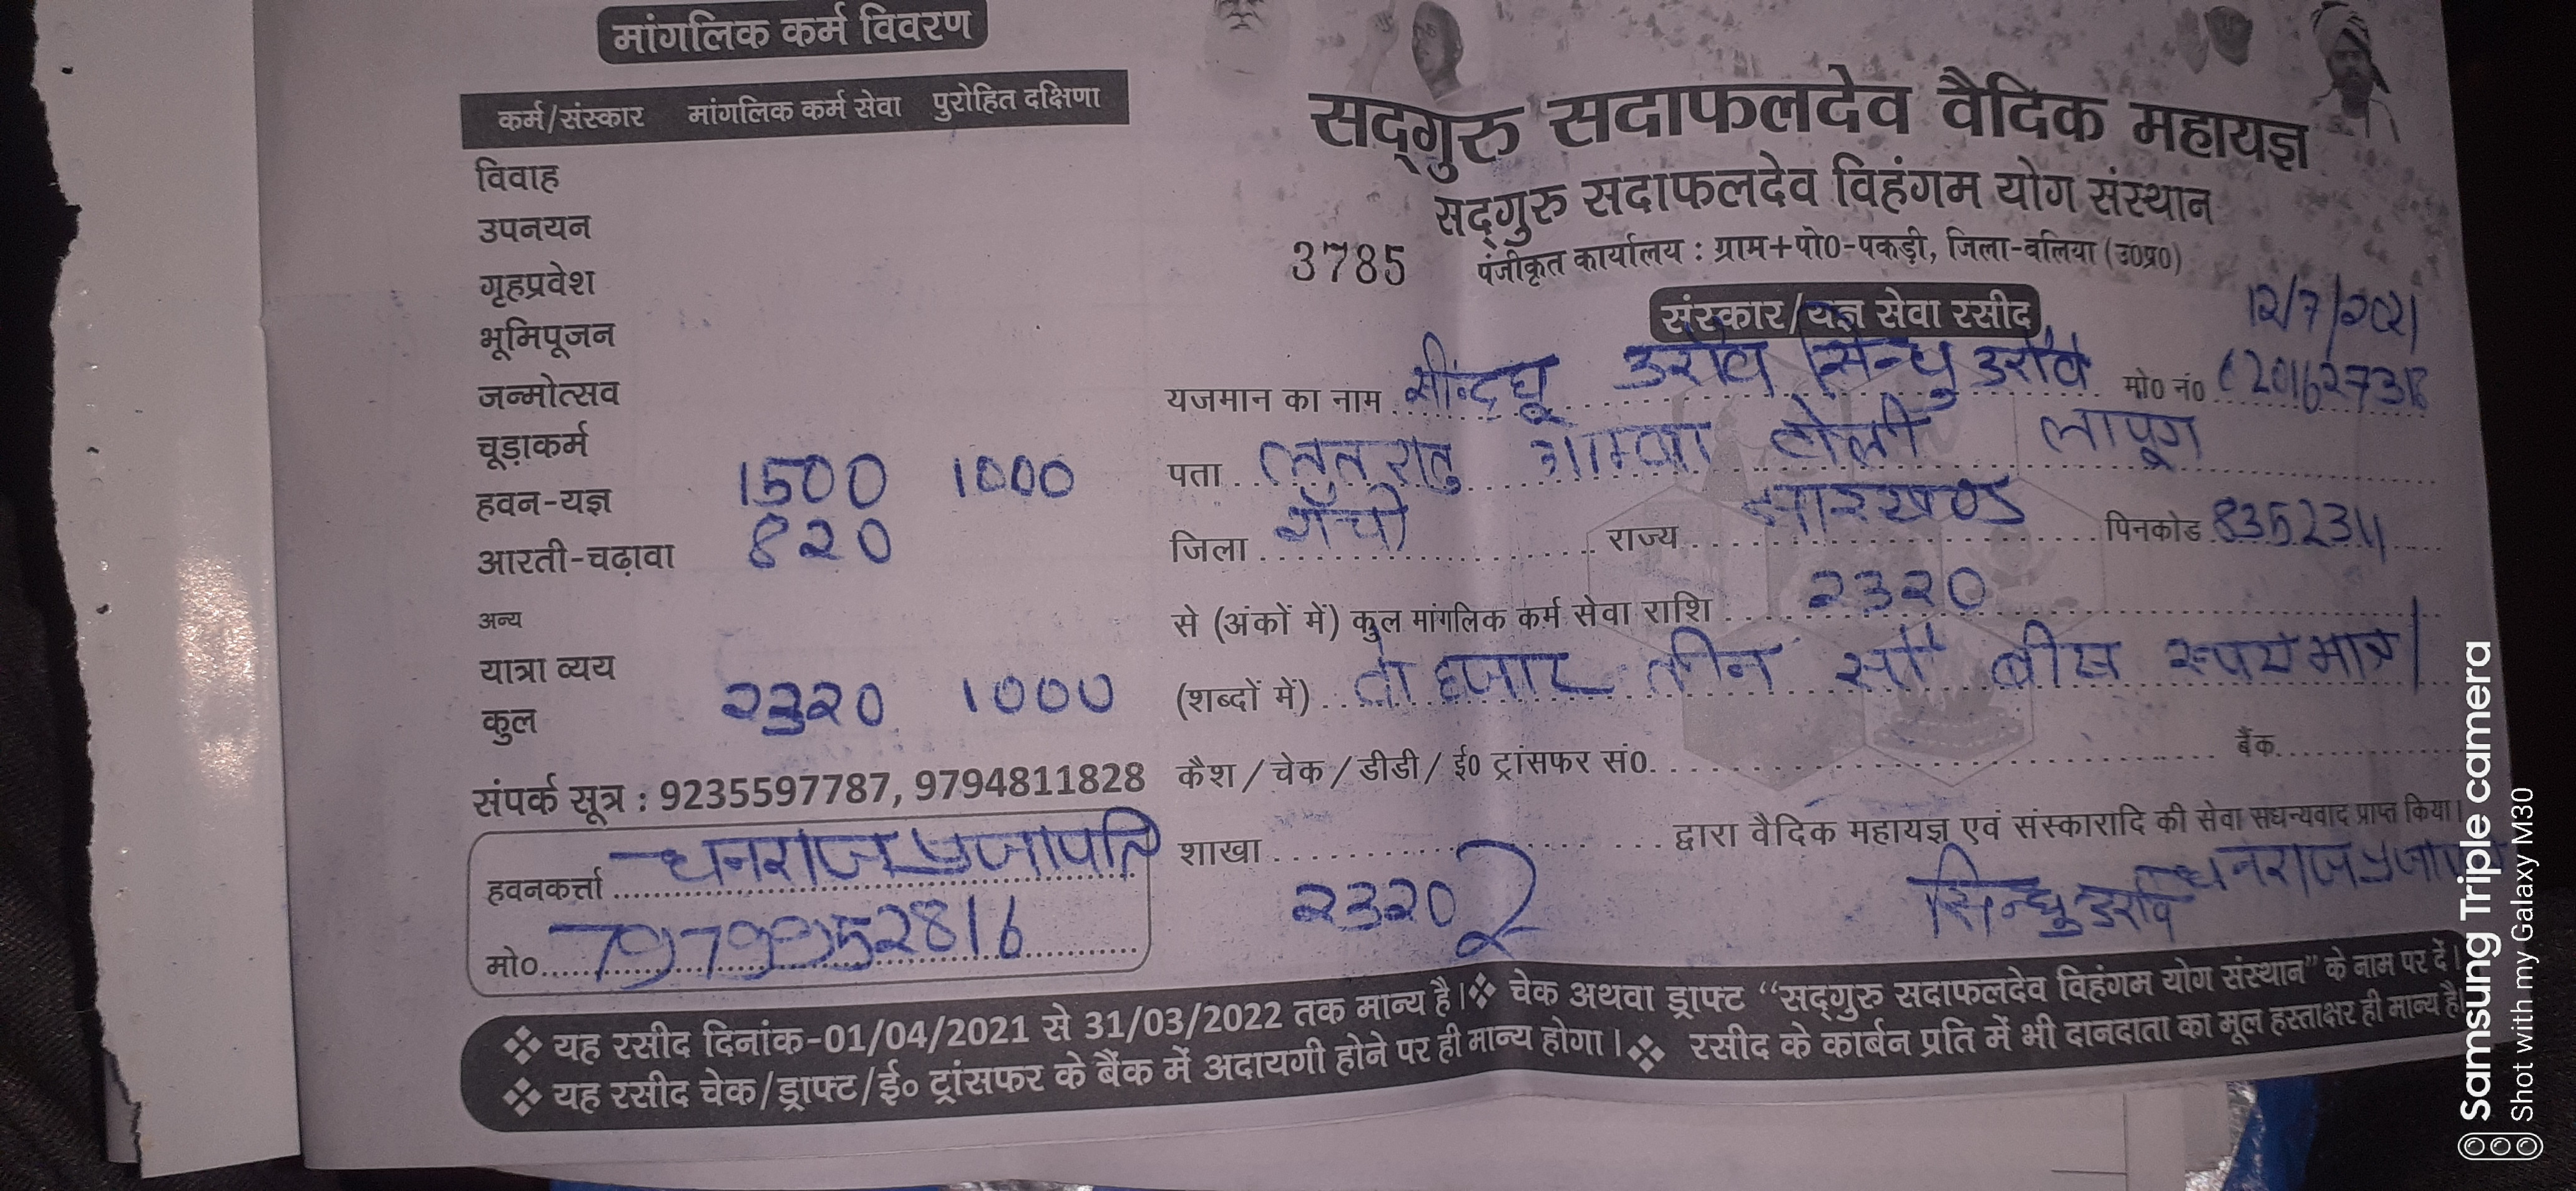 मांगलिक कर्म विवरण
कर्म/संस्कार मांगलिक कर्म सेवा पुरोहित दक्षिणा
विवाह
उपनयन
गृहप्रवेश
भूमिपूजन
जन्मोत्सव
चूड़ाकर्म
हवन-यज्ञ 1500 1000
आरती-चढ़ावा 820
अन्य
यात्रा व्यय
कुल 2320 1000
संपर्क सूत्र : 9235597787, 9794811828
हवनकर्त्ता धनराज प्रजापति
मो०
सद्गुरु सदाफलदेव वैदिक महायज्ञ
सद्गुरु सदाफलदेव विहंगम योग संस्थान
3785 पंजीकृत कार्यालय : ग्राम+पो0-पकड़ी, जिला-बलिया (उ0प्र0)
संस्कार/यज्ञ सेवा रसीद
12/7/2021
यजमान का नाम सीन्दघू उराँव सिन्धु उराँव मो0 नं0
पता लतरातु टोली लापूग
जिला राँची राज्य झारखण्ड पिनकोड
से (अंकों में) कुल मांगलिक कर्म सेवा राशि 2320
(शब्दों में) दो हजार तीन सौ बीस रूपये मात्र।
कैश/चेक/डीडी/ई0 ट्रांसफर सं0. बैंक
शाखा द्वारा वैदिक महायज्ञ एवं संस्कारादि की सेवा सधन्यवाद प्राप्त किया।
2320
सिन्धु उराँव धनराज
❖ यह रसीद दिनांक-01/04/2021 से 31/03/2022 तक मान्य है। ❖ चेक अथवा ड्राफ्ट “सद्गुरु सदाफलदेव विहंगम योग संस्थान” के नाम पर दें।
❖ यह रसीद चेक/ड्राफ्ट/ई० ट्रांसफर के बैंक में अदायगी होने पर ही मान्य होगा। ❖ रसीद के कार्बन प्रति में भी दानदाता का मूल हस्ताक्षर ही मान्य है।
Samsung Triple camera
Shot with my Galaxy M30